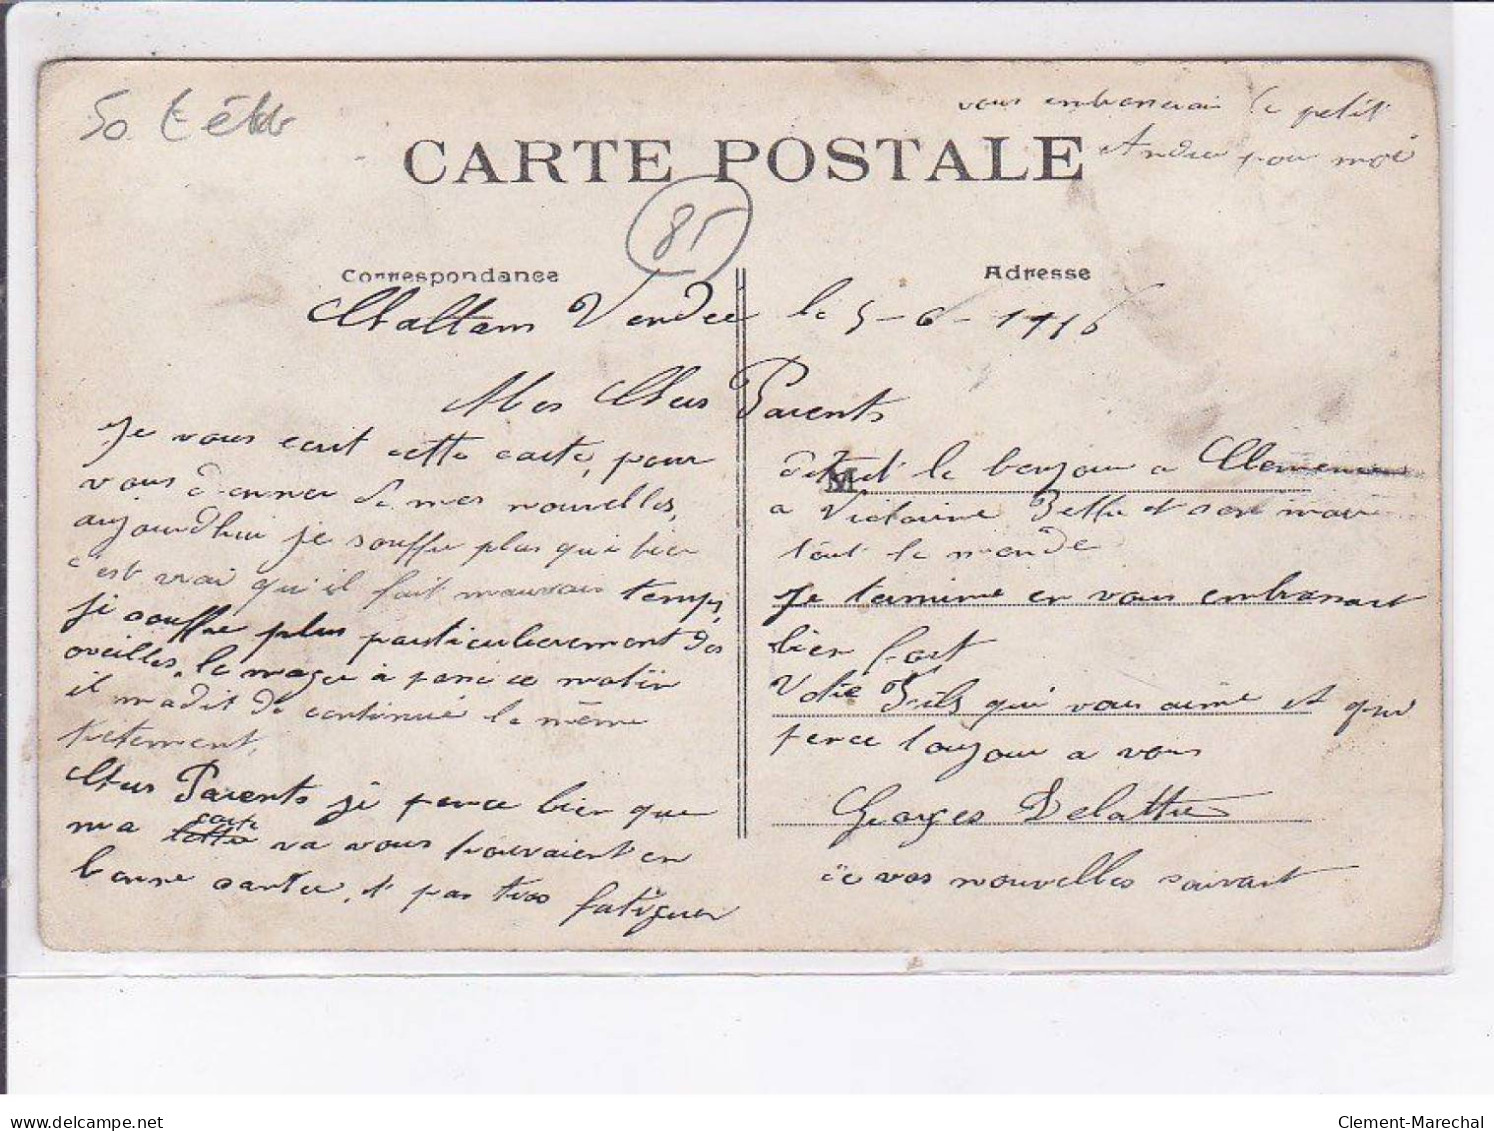 50 t
vous embrasserai le petit
Andre pour moi
CARTE POSTALE
85
Correspondance
Adresse
Challans Vendee le 5-6-1916
Mes Chers Parents
Je vous ecrit cette carte, pour
vous donner de mes nouvelles,
aujourdhui je souffre plus qui bien
c'est vrai qu'il fait mauvais temps,
je souffre plus particulierement des
oreilles. le
matin
il ma dit de continué le même
tretement.
Chers Parents je pence bien que
ma lettre carte va vous trouvaient en
bonne santee, et pas tros fatiguer
M
le bonjour a Clemence
a Victorine Bettu et son mari
tout le monde
Je termine en vous embrassant
bien fort
Votre Fils qui vous aime et qui
pence toujour a vous
Georges Delattre
de vos nouvelles souvant
www.delcampe.net
Clement-Marechal